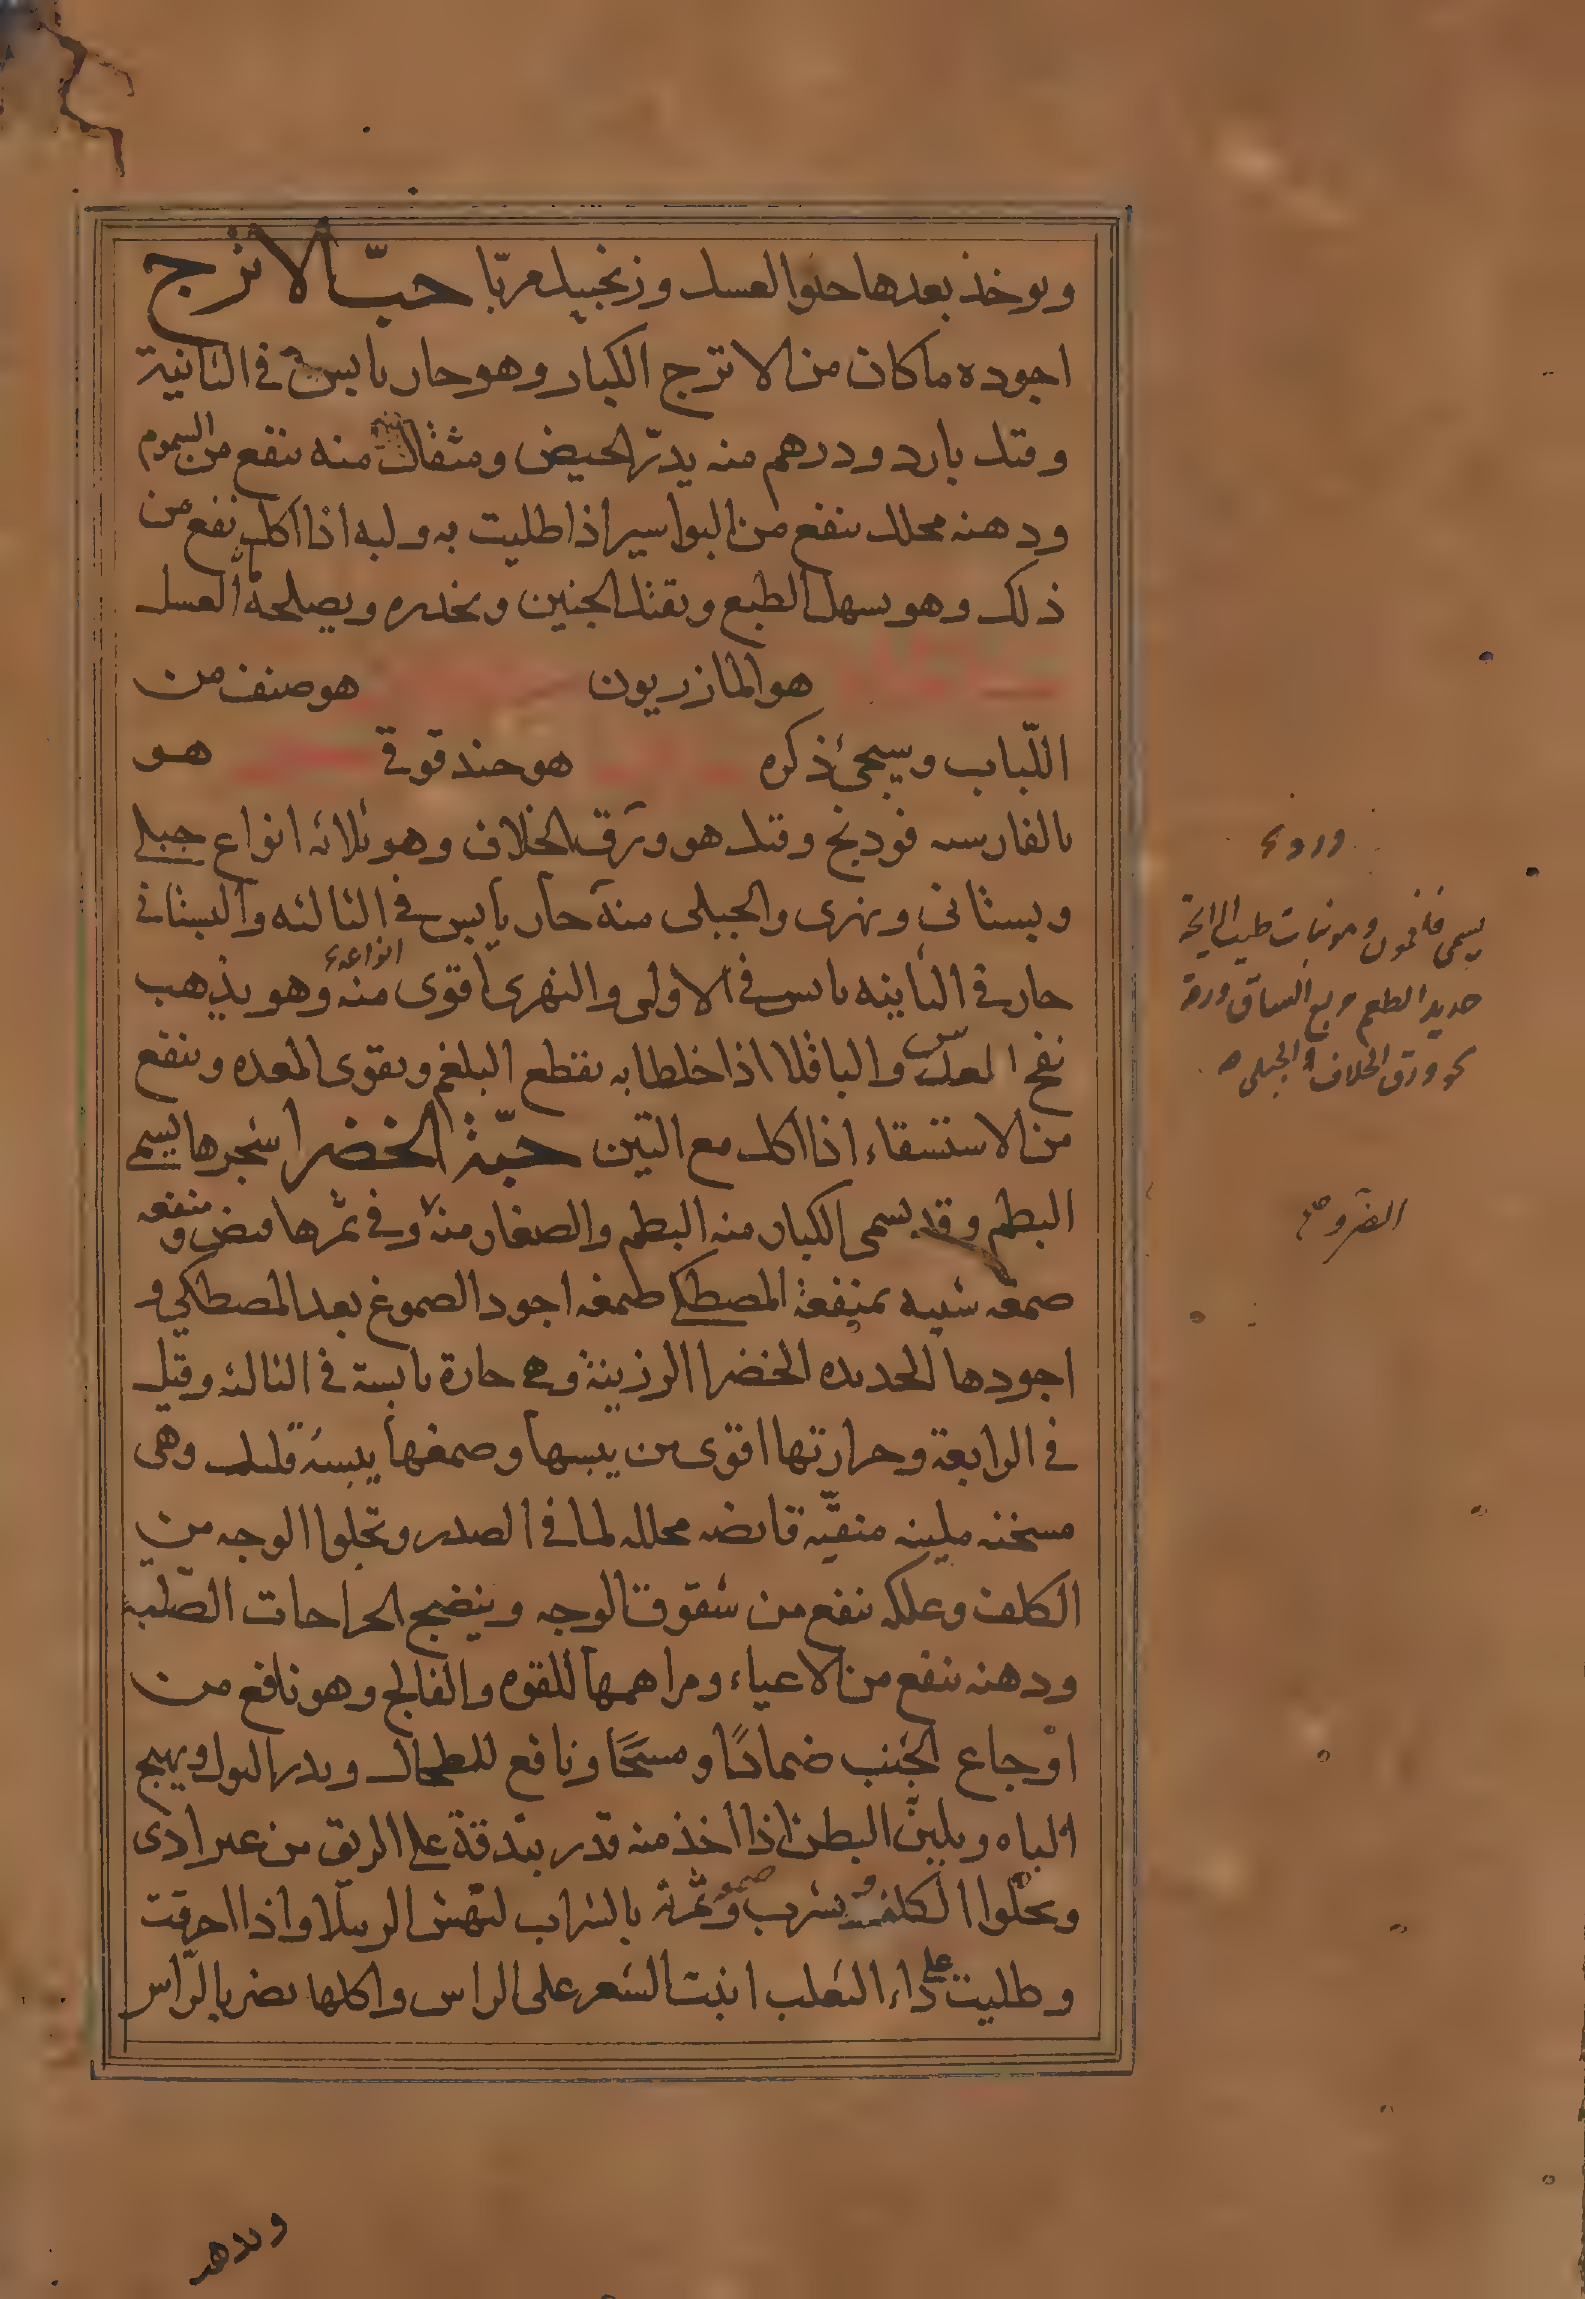 ويوخذ بعدها حلوا العسل وزنجبيل مربّا حبّ الاترج
اجوده ما كان من الاترج الكبار وهو حار يابس في الثانية
وقيل بارد ودرهم منه يدرّ الحيض ومثقال منه ينفع من السموم
ودهنه محلل ينفع من البواسير اذا طليت به ولبه اذا اكل نفع من
ذلك وهو يسهل الطبع ويقتل الجنين ويخدره ويصلحه العسل
هو المازريون هو صنف من
اللّباب وسيجئ ذكره هو حندقوقى هو
بالفارسيه فودنج وقيل هو ورق الخلاف وهو ثلاثه انواع جبلي
وبستاني ونهرى والجبلى منه حار يابس في الثالثه والبستاني
حار في الثانيه يابس في الاولى والنهرى اقوى انواعه منه وهو يذهب
نفخ العدس والباقلا اذا خلطا به يقطع البلغم ويقوى المعده وينفع
من الاستسقاء اذا اكل مع التين حبّة الخضرا شجرها يسمى
البطم وقد يسمى الكبار منه البطم والصغار منه وفي ثمرها قبض ومنفعه
صمغه شبيه بمنفعة المصطكى صمغه اجود الصموغ بعد المصطكى و
اجودها الحديده الخضرا الرزينة وهى حارة يابسة في الثالثه وقيل
في الرابعة وحرارتها اقوى من يبسها وصمغها يبسه قليل وهى
مسخنه ملينه منقيّه قابضه محلله لما في الصدر وتجلوا الوجه من
الكلف وعلكه ينفع من شقوق الوجه وينضج الجراحات الصّلبه
ودهنه ينفع من الاعياء ومراهمها للقوه والفالج وهو نافع من
اوجاع الجنب ضمادًا ومسحًا ونافع للطحال ويدر البول ويهيج
الباه ويلين البطن اذا اخذ منه قدر بندقة على الريق من غير اذى
ويجلوا الكلف ويشرب صمغه وثمرته بالشراب لنهش الرتيلا واذا احرقت
وطليت على داء الثعلب انبت الشعر على الراس واكلها يضر بالرّاس
يسمى فلنمون وهو نبات طيب الرايحة
حديد الطعم مربع الساق ورقه
نحو ورق الخلاف والجبلى
الضرو